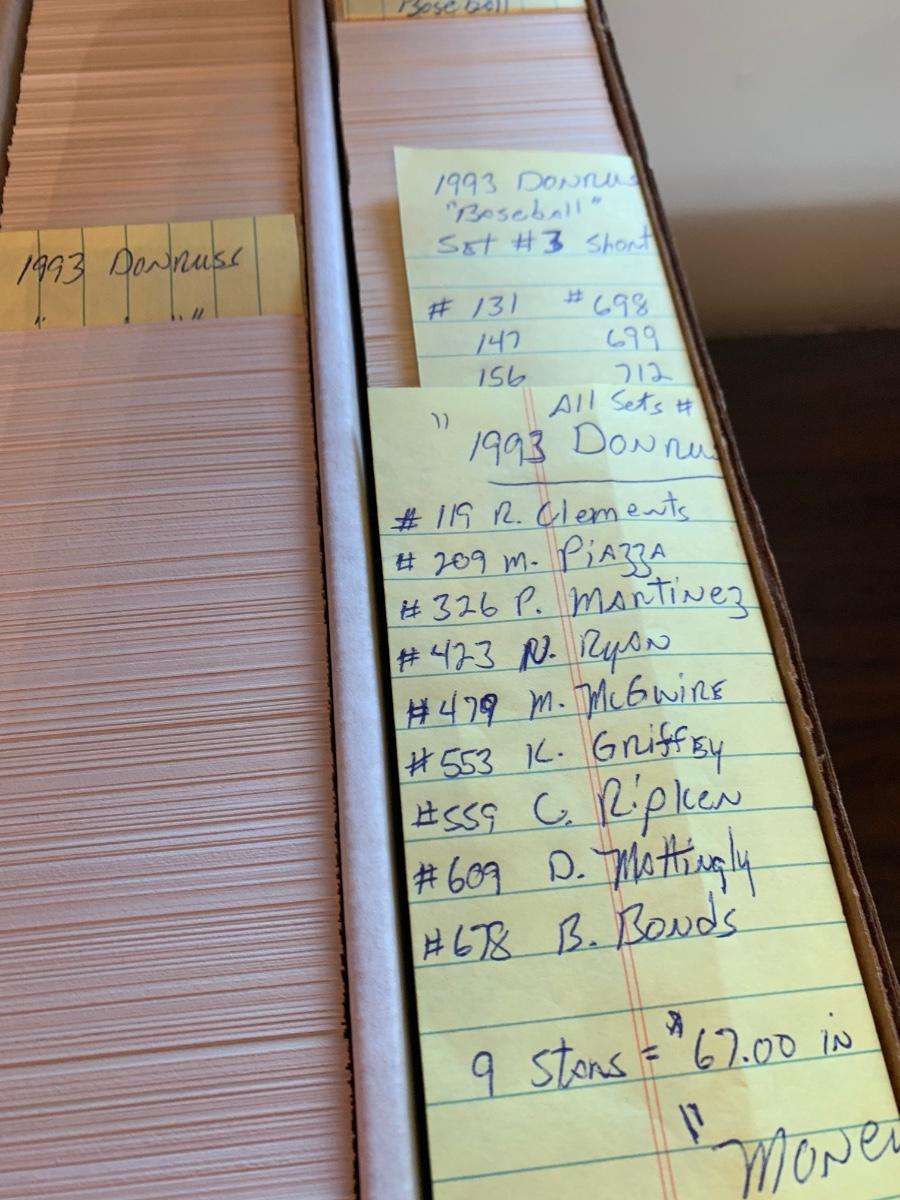 Baseball
1993 Donruss
" " "
1993 Donrus
"Baseball"
Set #3 Short
# 131 # 698
147 699
156 712
All Sets #
" 1993 Donru
# 119 R. Clements
# 209 M. Piazza
# 326 P. Martinez
# 423 N. Ryan
# 479 M. McGwire
# 553 K. Griffey
# 559 C. Ripken
# 609 D. Mattingly
# 678 B. Bonds
9 Stars = $67.00 in
" Money